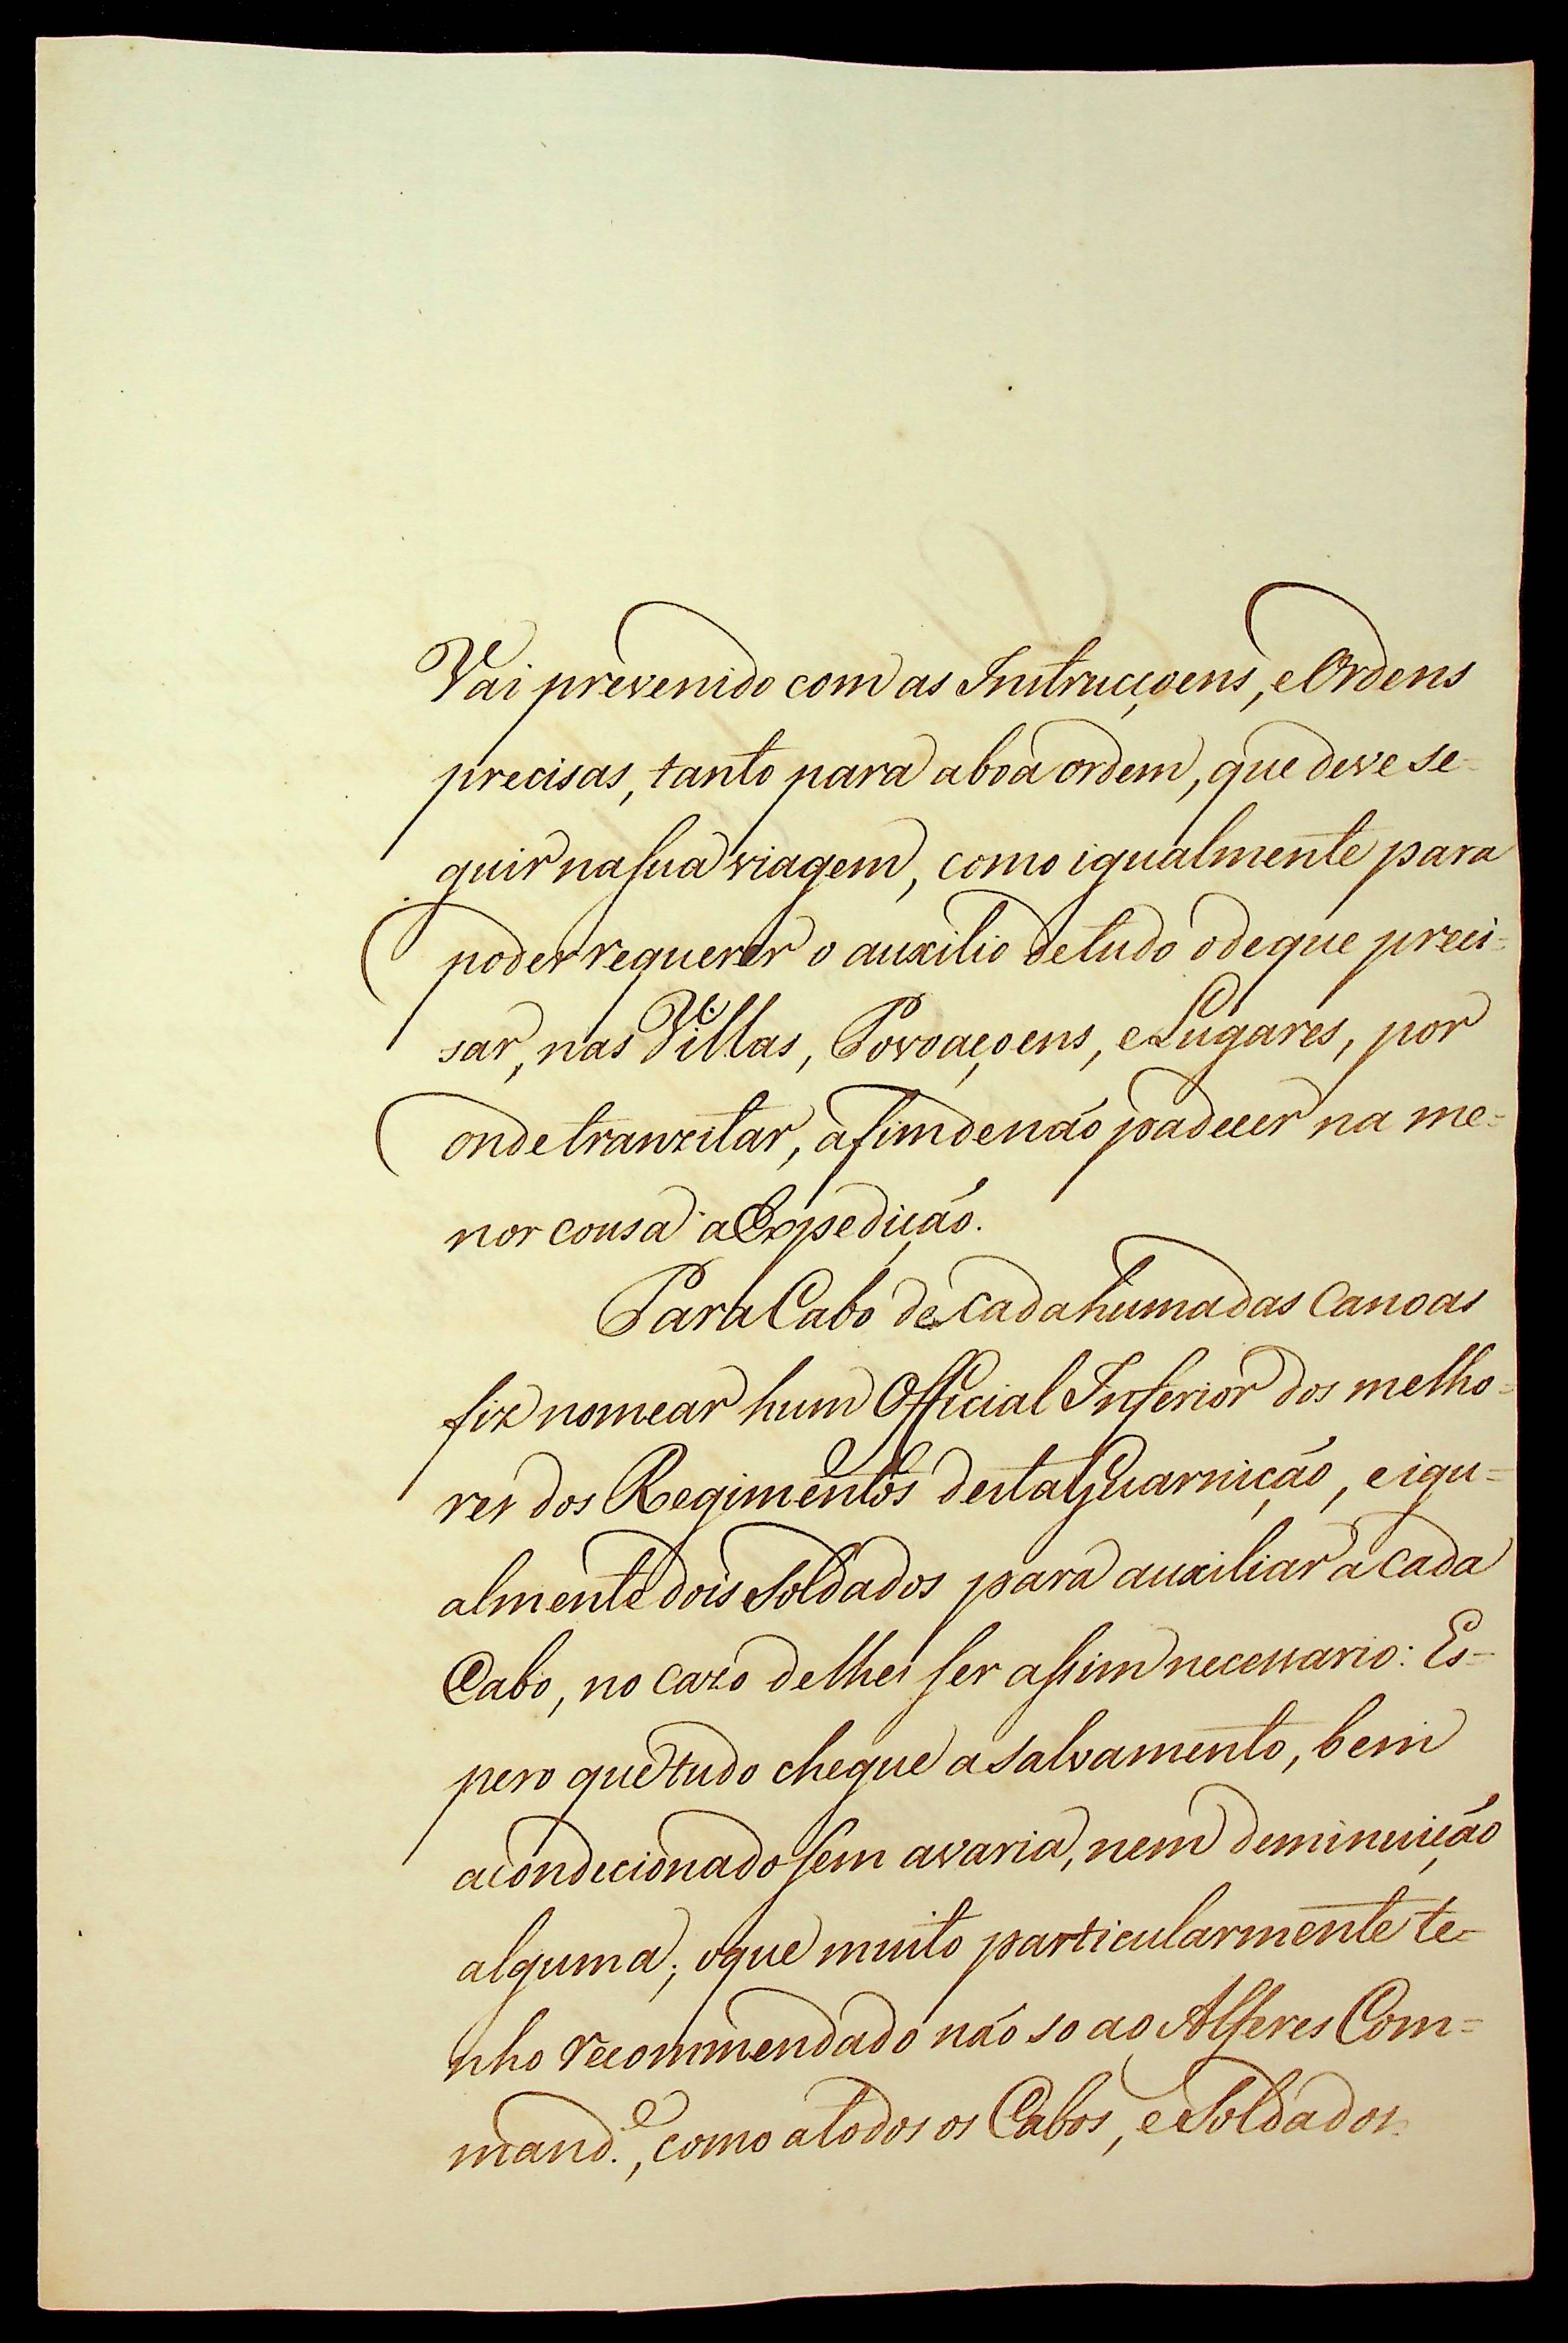 Vai prevenido com as Instrucçoens, e Ordens
precisas, tanto para a boa ordem, que deve se-
guir na sua viagem, como igualmente para
poder requerer o auxilio de tudo o de que preci-
sar, nas Villas, Povoaçoens, e Lugares, por
onde tranzitar, afim de não padecer na me-
nor cousa a Expedição.
Para Cabo de cada huma das Canoas
fiz nomear hum Official Inferior dos melho-
res dos Regimentos desta Guarnição, e igu-
almente dois Soldados para auxiliar a cada
Cabo, no cazo de lhes ser assim necessario: Es-
pero que tudo chegue a salvamento, bem
acondecionado sem avaria, nem deminuição
alguma; o que muito particularmente te-
nho recommendado não so ao Alferes Com-
mand.e, como a todos os Cabos, e Soldados.